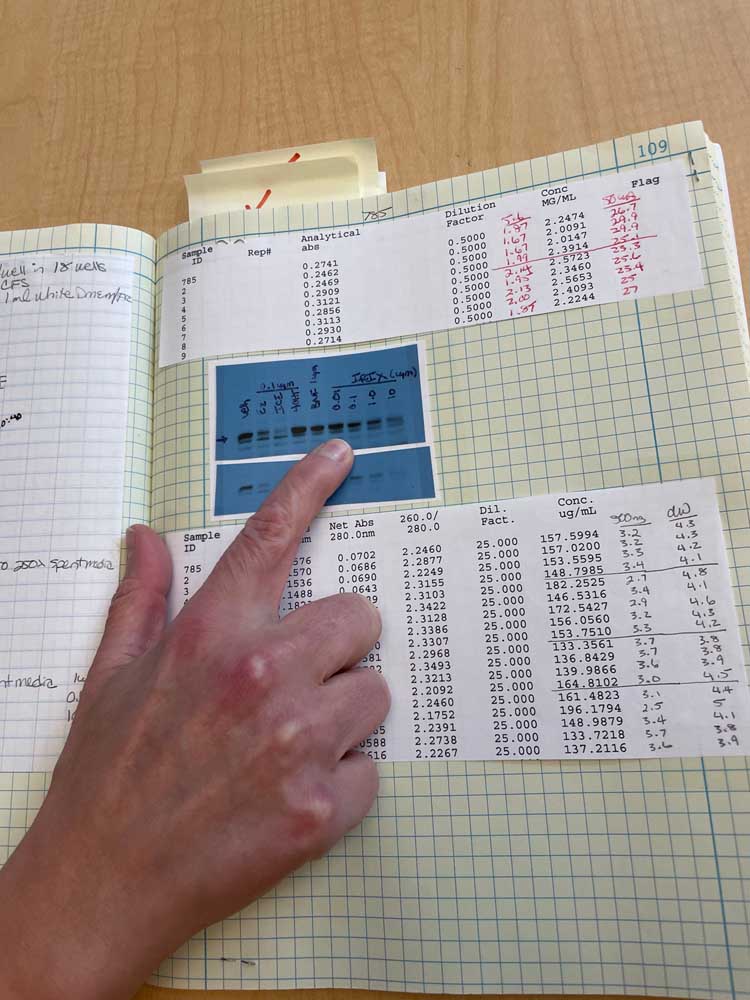 109
785
Sample ID Rep# Analytical abs Dilution Factor Conc MG/ML 50 ug Flag
785 0.2741 0.5000 1.87 2.2474 26.7
2 0.2462 0.5000 1.67 2.0091 29.9
3 0.2469 0.5000 1.67 2.0147 29.9
4 0.2909 0.5000 1.99 2.3914 25.1
5 0.3121 0.5000 2.14 2.5723 23.3
6 0.2856 0.5000 1.95 2.3460 25.6
7 0.3113 0.5000 2.13 2.5653 23.4
8 0.2930 0.5000 2.00 2.4093 25
9 0.2714 0.5000 1.85 2.2244 27
18 wells
1 ml white
0.1 uM (uM)
veh ICZ 0.01 0.1 1.0 10
250λ spent media
Sample ID Net Abs 280.0nm 260.0/ 280.0 Dil. Fact. Conc. ug/mL 500ng dW
785 576 0.0702 2.2460 25.000 157.5994 3.2 4.3
2 570 0.0686 2.2877 25.000 157.0200 3.2 4.3
3 1536 0.0690 2.2249 25.000 153.5595 3.3 4.2
1488 0.0643 2.3155 25.000 148.7985 3.4 4.1
2.3103 25.000 182.2525 2.7 4.8
2.3422 25.000 146.5316 3.4 4.1
2.3128 25.000 172.5427 2.9 4.6
2.3386 25.000 156.0560 3.2 4.3
2.3307 25.000 153.7510 3.3 4.2
2.2968 25.000 133.3561 3.7 3.8
2.3493 25.000 136.8429 3.7 3.8
2.3213 25.000 139.9866 3.6 3.9
2.2092 25.000 164.8102 3.0 4.5
2.2460 25.000 161.4823 3.1 4.4
2.1752 25.000 196.1794 2.5 5
2.2391 25.000 148.9879 3.4 4.1
0588 2.2738 25.000 133.7218 3.7 3.8
616 2.2267 25.000 137.2116 3.6 3.9
nt media